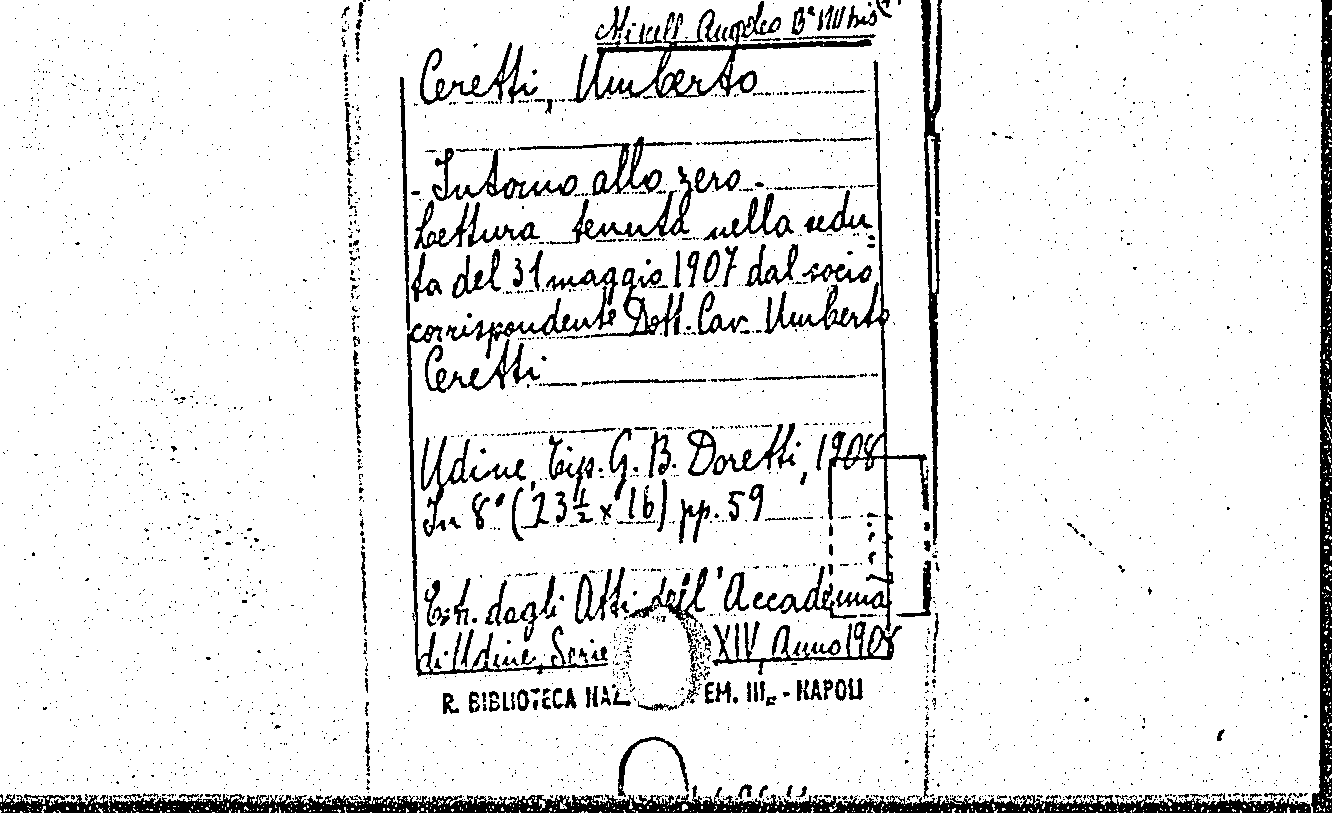 Miscell. Angeleo Bª
Ceretti, Umberto
- Intorno allo zero -
Lettura tenuta nella sedu=
ta del 31 maggio 1907 dal socio
corrispondente Dott. Cav. Umberto
Ceretti
Udine, Tip. G. B. Doretti, 1908
In 8° (23½ x 16) pp. 59
Estr. dagli Atti dell'Accademia
di Udine, Serie XIV, Anno 1908
R. BIBLIOTECA NAZ EM. III - NAPOLI